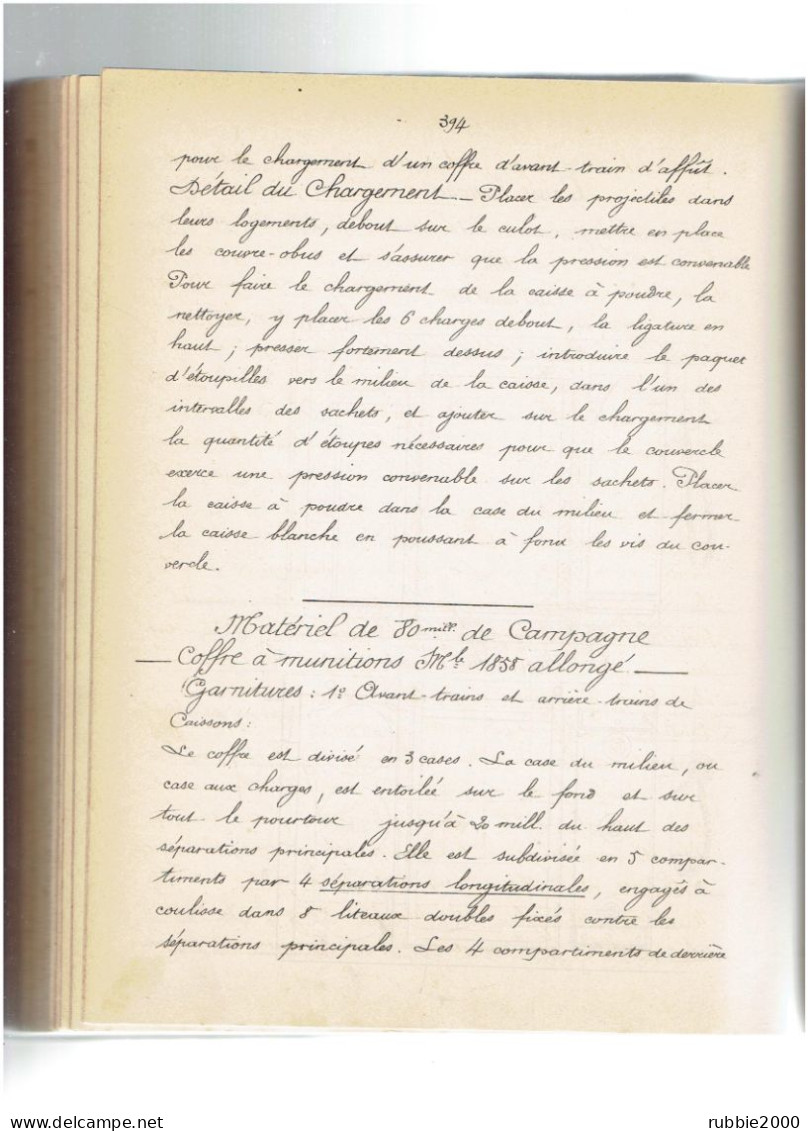 394
pour le chargement d'un coffre d'avant-train d'affût.
Détail du Chargement._ Placer les projectiles dans
leurs logements, debout sur le culot, mettre en place
les couvre-obus et s'assurer que la pression est convenable
Pour faire le chargement de la caisse à poudre, la
nettoyer, y placer les 6 charges debout, la ligature en
haut; presser fortement dessus; introduire le paquet
d'étoupilles vers le milieu de la caisse, dans l'un des
intervalles des sachets, et ajouter sur le chargement
la quantité d'étoupes nécessaires pour que le couvercle
exerce une pression convenable sur les sachets. Placer
la caisse à poudre dans la case du milieu et fermer
la caisse blanche en poussant à fond les vis du cou-
vercle.
Matériel de 80 mill. de Campagne
Coffre à munitions Mle 1858 allongé
Garnitures: 1º Avant-trains et arrière-trains de
Caissons:
Le coffre est divisé en 3 cases. La case du milieu, ou
case aux charges, est entoilée sur le fond et sur
tout le pourtour jusqu'à 20 mill. du haut des
séparations principales. Elle est subdivisée en 5 compar-
timents par 4 séparations longitudinales, engagés à
coulisse dans 8 liteaux doubles fixés contre les
séparations principales. Les 4 compartiments de derrière
rubbie2000